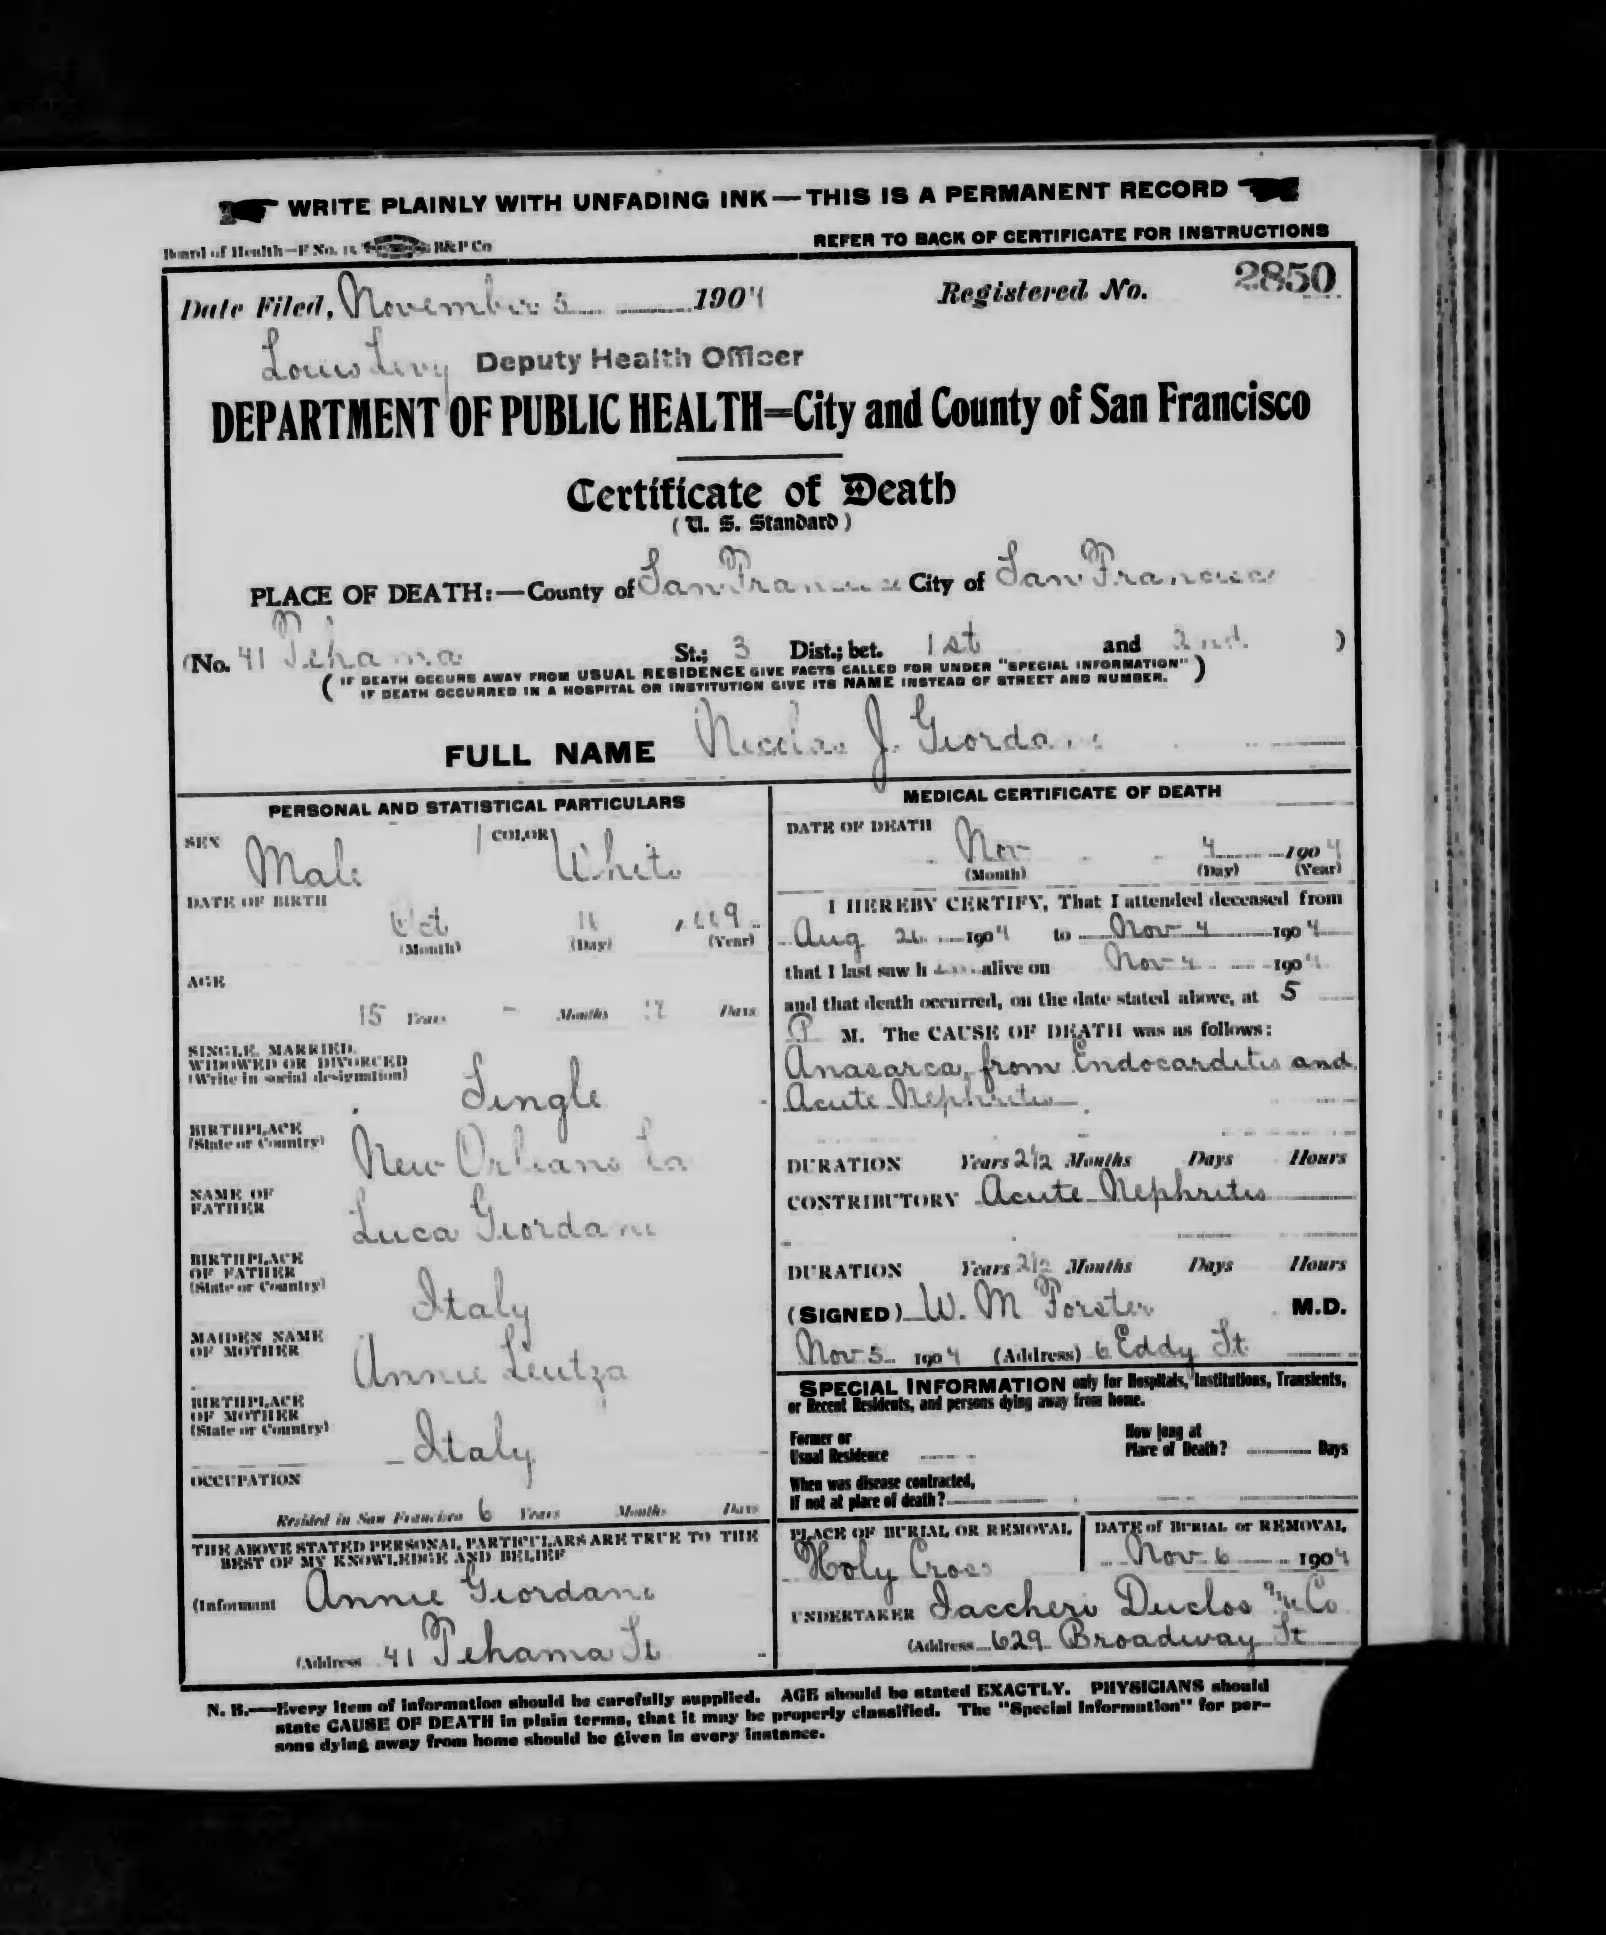 WRITE PLAINLY WITH UNFADING INK—THIS IS A PERMANENT RECORD
Board of Health—F No. B&P Co
REFER TO BACK OF CERTIFICATE FOR INSTRUCTIONS
Date Filed, November 5 1904
Registered No. 2850
Louis Levy Deputy Health Officer
DEPARTMENT OF PUBLIC HEALTH=City and County of San Francisco
Certificate of Death
(U. S. Standard)
PLACE OF DEATH:—County of San Francisco City of San Francisco
(No. 41 Tehama St.; 3 Dist.; bet. 1st and 2nd )
( IF DEATH OCCURS AWAY FROM USUAL RESIDENCE GIVE FACTS CALLED FOR UNDER "SPECIAL INFORMATION" )
IF DEATH OCCURRED IN A HOSPITAL OR INSTITUTION GIVE ITS NAME INSTEAD OF STREET AND NUMBER.
FULL NAME Nicolas J. Giordano
PERSONAL AND STATISTICAL PARTICULARS
SEX Male COLOR White
DATE OF BIRTH
Oct
(Month) (Day) (Year)
AGE
15 Years - Months Days
SINGLE, MARRIED,
WIDOWED OR DIVORCED
(Write in social designation)
Single
BIRTHPLACE
(State or Country)
New Orleans La
NAME OF
FATHER
Luca Giordano
BIRTHPLACE
OF FATHER
(State or Country)
Italy
MAIDEN NAME
OF MOTHER
Annie Leutza
BIRTHPLACE
OF MOTHER
(State or Country)
Italy
OCCUPATION
Resided in San Francisco 6 Years Months Days
THE ABOVE STATED PERSONAL PARTICULARS ARE TRUE TO THE
BEST OF MY KNOWLEDGE AND BELIEF
(Informant Annie Giordano
(Address 41 Tehama St
MEDICAL CERTIFICATE OF DEATH
DATE OF DEATH
Nov 4 1904
(Month) (Day) (Year)
I HEREBY CERTIFY, That I attended deceased from
Aug 26 1904 to Nov 4 1904
that I last saw h alive on Nov 4 1904
and that death occurred, on the date stated above, at 5
P M. The CAUSE OF DEATH was as follows:
Anasarca, from Endocarditis and
Acute Nephritis
DURATION Years 2½ Months Days Hours
CONTRIBUTORY Acute Nephritis
DURATION Years 2½ Months Days Hours
(SIGNED) W. M Forster M.D.
Nov 5 1904 (Address) 6 Eddy St
SPECIAL INFORMATION only for Hospitals, Institutions, Transients,
or Recent Residents, and persons dying away from home.
Former or
Usual Residence
How long at
Place of Death? Days
When was disease contracted,
If not at place of death?
PLACE OF BURIAL OR REMOVAL
Holy Cross
DATE of BURIAL or REMOVAL
Nov 6 1904
UNDERTAKER Iaccheri Duclos & Co
(Address 629 Broadway St
N. B.—Every item of information should be carefully supplied. AGE should be stated EXACTLY. PHYSICIANS should
state CAUSE OF DEATH in plain terms, that it may be properly classified. The "Special Information" for per-
sons dying away from home should be given in every instance.